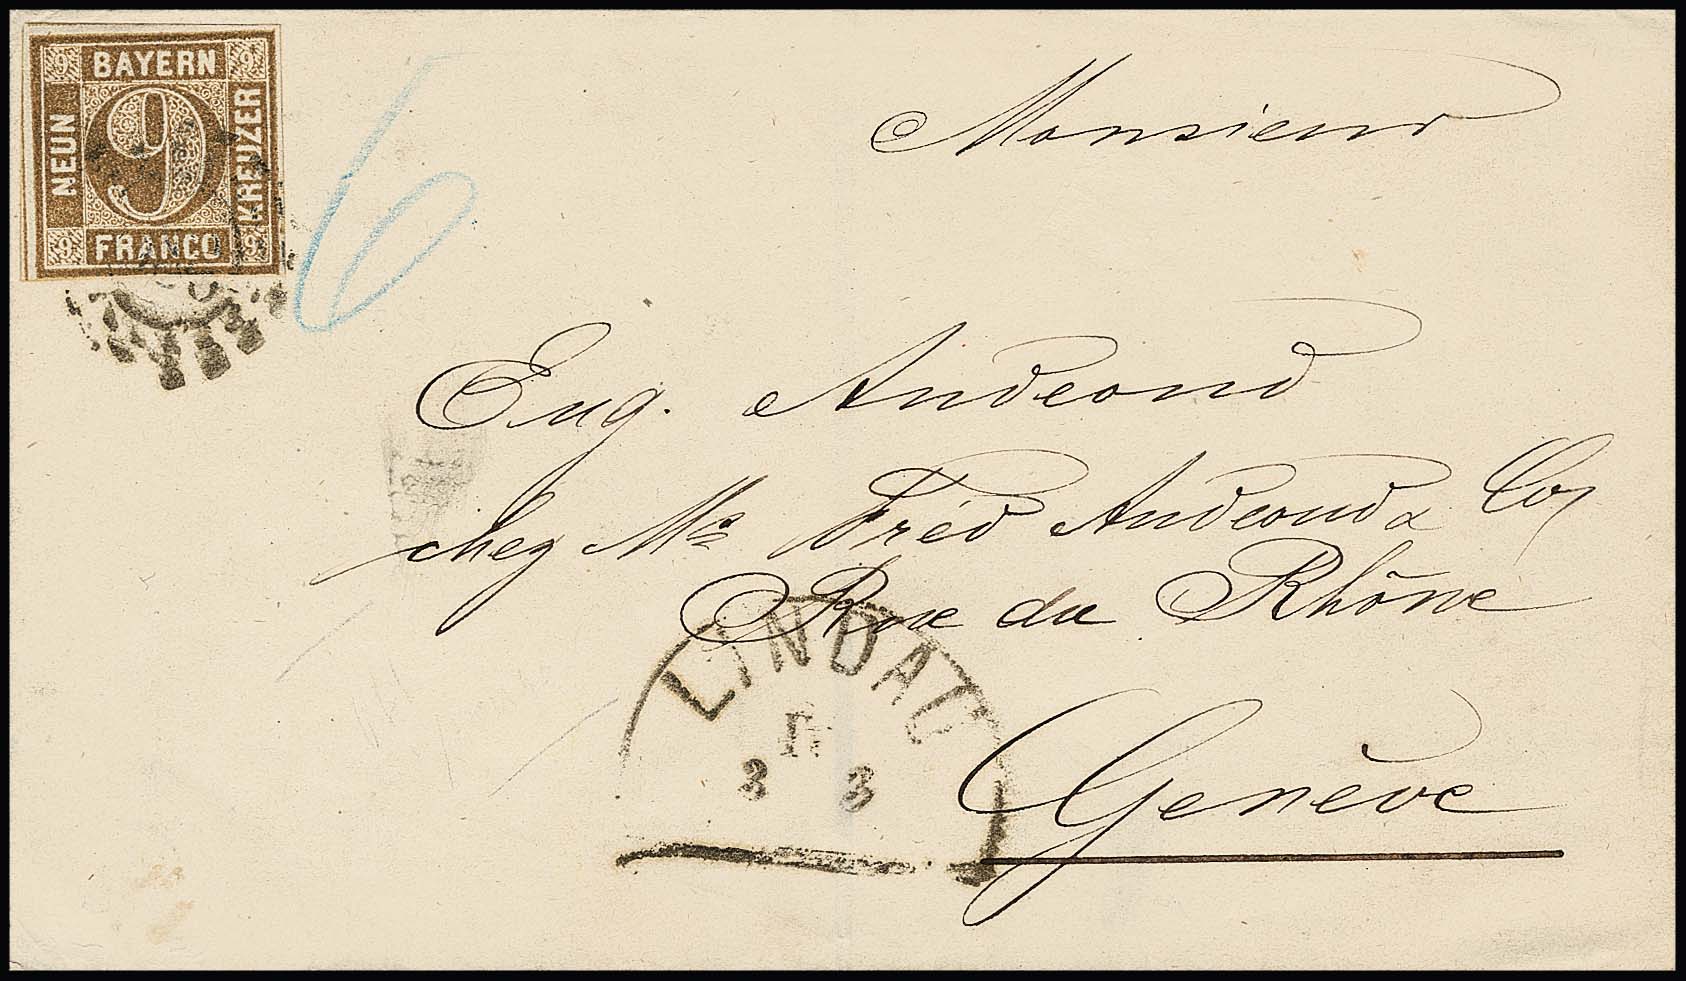 9 BAYERN 9
NEUN 9 KREUZER
9 FRANCO 9
6
Monsieur
Eug. Andeoud
chez Mrs Fréd Andeoud & Co,
Rue du Rhône
Genève
LINDAU
3 3